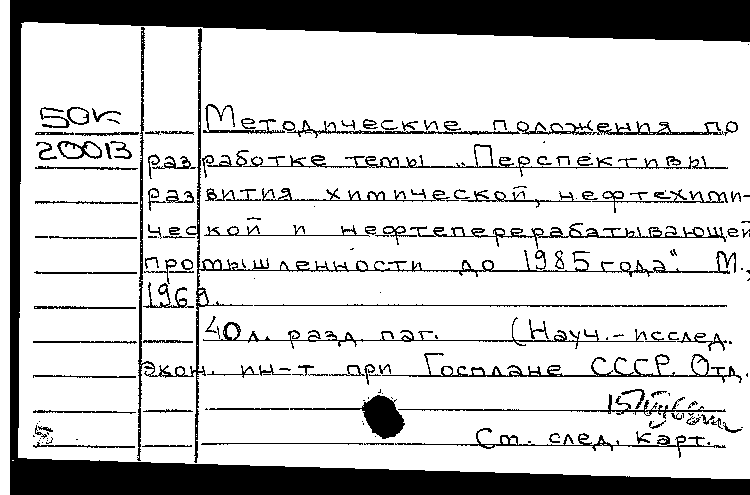 50К Методические положения по
200В разработке темы „Перспективы
развития химической, нефтехими-
ческой и нефтеперерабатывающей
промышленности до 1985 года". М.,
1969.
40 л. разд. паг. (Науч.-исслед.
экон. ин-т при Госплане СССР. Отд.
См. след. карт.